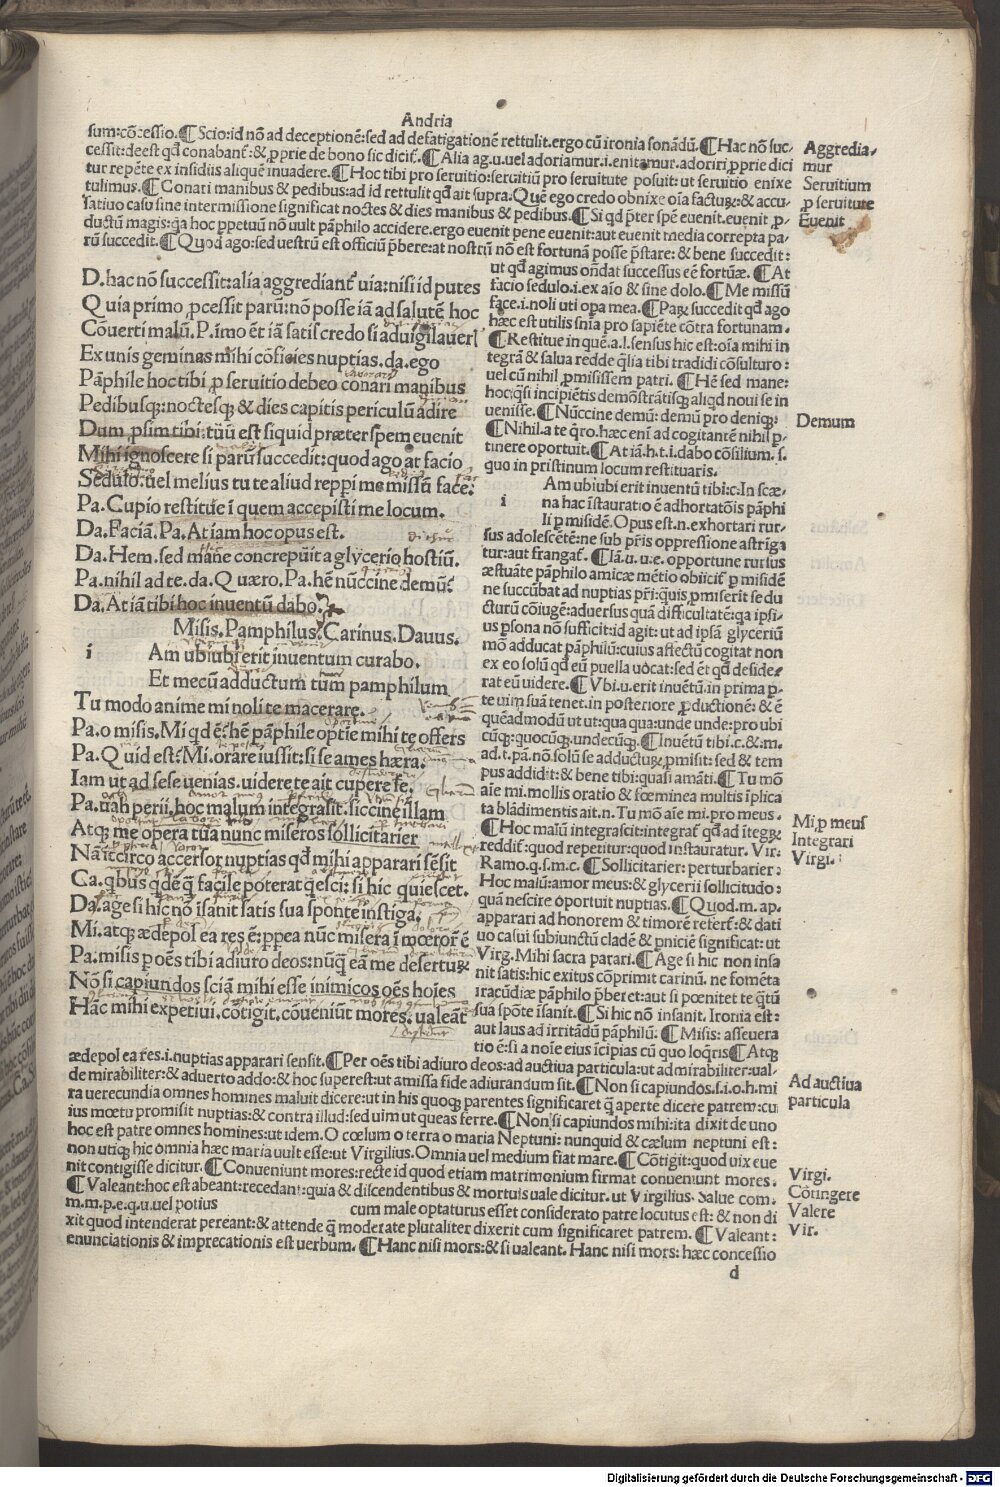 Andria
sum:cōcessio.¶Scio:id nō ad deceptionē:sed ad defatigationē rettulit.ergo cū ironia sonādū.¶Hac nō suc-
cessit:deest qđ conabant̄:&ꝓprie de bono sic dicit̄.¶Alia ag.u.uel adoriamur.i.enitamur.adoriri ꝓprie dici
tur repēte ex insidiis aliquē inuadere.¶Hoc tibi pro seruitio:seruitiū pro seruitute posuit:ut seruitio enixe
tulimus.¶Conari manibus & pedibus:ad id rettulit qđ ait supra:Quē ego credo obnixe oīa facturꝫ:& accu-
satiuo casu sine intermissione significat noctes & dies manibus & pedibus.¶Si qđ p̄ter spē euenit.euenit ꝓ-
ductū magis:q̄a hoc ꝑpetuū nō uult pāphilo accidere.ergo euenit pene euenit:aut euenit media correpta pa-
rū succedit.¶Quod ago:sed uestrū est officiū p̄bere:at nostrū nō est fortunā posse p̄stare:& bene succedit:
Aggredia-
mur
Seruitium
ꝓ seruitute
Euenit
D.hac nō successit:alia aggrediant̄ uia:nisi id putes
Quia primo ꝓcessit parū:nō posse iā ad salutē hoc
Cōuerti malū.P.īmo ēt iā satis credo si aduigilauerī
Ex unis geminas mihi cōficies nuptias.da.ego
Pāphile hoc tibi ꝓ seruitio debeo conari manibus
Pedibusqꝫ:noctesqꝫ & dies capitis periculū adire
Dum ꝓsim tibi:tuū est siquid præter spem euenit
Mihi ignoscere si parū succedit:quod ago at facio
Sedulo:uel melius tute aliud reppi me missū face.
Pa.Cupio restitue ī quem accepisti me locum.
Da.Faciā.Pa.At iam hoc opus est.
Da.Hem.sed mane concrepuit a glycerio hostiū.
Pa.nihil ad te.da.Quæro.Pa.hē nūccine demū?
Da.At iā tibi hoc inuentū dabo.
Misis.Pamphilus.Carinus.Dauus.
i Am ubiubi erit inuentum curabo.
Et mecū adductum tuum pamphilum
Tu modo anime mi noli te macerare.
Pa.o misis.Mi.qđ ē?hē pāphile optīe mihi te offers
Pa.Quid est?Mi.orare iussit:si se ames hæra:
Iam ut ad sese uenias.uidere te ait cupere.
Pa.uah perii,hoc malum integrasit.siccine illam
Atqꝫ me opera tūa nunc miseros sollicitarier
Nā iccirco accersor nuptias qđ mihi apparari sēsit
Ca.qbus qđē q̄ facile poterat q̄esci:si hic quiescet.
Da.age si hic nō īsanit satis sua sponte instiga.
Mi.atqꝫ ædepol ea res ē:ꝓpea nūc misera ī mœror ē
Pa.misis ꝑ oēs tibi adiuro deos:nūq̄ eā me desertuꝫ
Nō si capiundos sciā mihi esse inimicos oēs hoīes
Hāc mihi expetiui.cōtigit.cōueniūt mores:ualeāt
ut qđ agimus oñdat successus eē fortūæ.¶At
facio sedulo.i.ex aīo & sine dolo.¶Me missū
face.i.noli uti opa mea.¶Paꝝ succedit qđ ago
hæc est utilis snīa pro sapiēte cōtra fortunam.
¶Restitue in quē.a.l.sensus hic est:oīa mihi in
tegrā & salua redde q̄lia tibi tradidi cōsulturo:
uel cū nihil ꝓmisissem patri.¶Hē sed mane:
hoc:q̄si incipiētis demōstrātisqꝫ aliqđ noui se in
uenisse.¶Nūccine demū:demū pro deniqꝫ.
¶Nihil.a te q̄ro.hæc eni ad cogitantē nihil ꝑ-
tinere oportuit.¶At iā.h.t.i.dabo cōsilium.s.
quo in pristinum locum restituaris.
Demum
i Am ubiubi erit inuentū tibi:c:In scæ-
na hac īstauratio ē adhortatōis pāphi
li ꝑ misidē.Opus est.n.exhortari rur-
sus adolescētē:ne sub pr̄is oppressione astriga
tur:aut frangat̄.¶Iā.u.u.e.opportune rursus
æstuāte pāphilo amicæ mētio obiicit̄ ꝑ misidē
ne succūbat ad nuptias pr̄i:quis ꝓmiserit se du
cturū cōiugē:aduersus quā difficultatē:qa ipsi-
us ꝑsona nō sufficit:id agit:ut ad ipsā glyceriū
mō adducat pāphilū:cuius affectū cogitat non
ex eo solū qđ eū puella uocat:sed ēt qđ deside-
rat eū uidere.¶Vbi.u.erit inuētū.in prima ꝑ-
te uim suā tenet.in posteriore ꝓductionē:& ē
quēadmodū ut ut:qua qua:unde unde:pro ubi
cūqꝫ:quocūqꝫ.undecūqꝫ.¶Inuētū tibi.c.&.m.
ad.t.pā.nō solū se adducturꝫ ꝓmisit:sed & tem
pus addidit:& bene tibi:quasi amāti.¶Tu mō
aīe mi.mollis oratio & fœminea multis īplica
ta blādimentis ait.n.Tu mō aīe mi.pro meus.
¶Hoc malū integrascit:integrat̄ qđ ad ītegꝝ
reddit̄:quod repetitur:quod instauratur. Vir.
Ramo.q.s.m.c.¶Sollicitarier:perturbarier:
Hoc malū:amor meus:& glycerii sollicitudo:
quā nescire oportuit nuptias.¶Quod.m.ap.
apparari ad honorem & timorē refert̄:& dati
uo casui subiunctū cladē & ꝑniciē significat:ut
Virg.Mihi sacra parari.¶Age si hic non insa
nit satis:hic exitus cōprimit carinū.ne fomēta
iracūdiæ pāphilo p̄beret:aut si pœnitet te q̄tū
sua spōte īsanit.¶Si hic nō insanit.Ironia est:
aut laus ad irritādū pāphilū.¶Misis:asseuera
tio ē:si a noīe eius īcipias cū quo loq̄ris¶Atqꝫ
Mi ꝓ meus
Integrari
Virgi.
ædepol ea res.i.nuptias apparari sensit.¶Per oēs tibi adiuro deos:ad auctiua particula:ut admirabiliter:ual-
de mirabiliter:& aduerto addo:& hoc superest:ut amissa fide adiurandum sit.¶Non si capiundos.s.i.o.h.mi
ra uerecundia omnes homines maluit dicere:ut in his quoqꝫ parentes significaret q̄ aperte dicere patrem:cu
ius mœtu promisit nuptias:& contra illud:sed uim ut queas ferre.¶Non si capiundos mihi:ita dixit de uno
hoc est patre omnes homines:ut idem.O cœlum o terra o maria Neptuni:nunquid & cælum neptuni est:
non utiqꝫ hic omnia hæc maria uult esse:ut Virgilius.Omnia uel medium fiat mare.¶Cōtigit:quod uix eue
nit contigisse dicitur.¶Conueniunt mores:recte id quod etiam matrimonium firmat conueniunt mores.
¶Valeant:hoc est abeant:recedant:quia & discendentibus & mortuis uale dicitur.ut Virgilius.Salue com.
m.m.p.e.q.u.uel potius cum male optaturus esset considerato patre locutus est:& non di
xit quod intenderat pereant:& attende q̄ moderate pluraliter dixerit cum significaret patrem.¶Valeant:
enunciationis & imprecationis est uerbum.¶Hanc nisi mors:& si ualeant.Hanc nisi mors:hæc concessio
Ad auctiua
particula
Virgi.
Cōtingere
Valere
Vir.
d
Digitalisierung gefördert durch die Deutsche Forschungsgemeinschaft - DFG